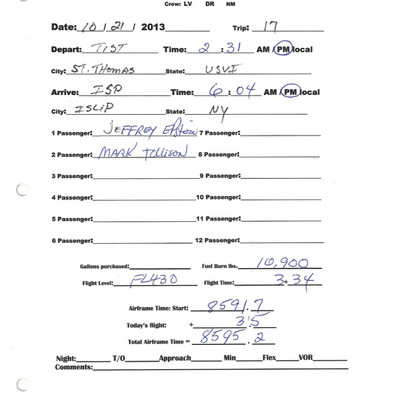 Crew: LV DR NM
Date: 10/21/2013 Trip: 17
Depart: TIST Time: 2:31 AM PM local
City: ST. THOMAS State: USVI
Arrive: ISP Time: 6:04 AM PM local
City: ISLIP State: NY
1 Passenger: JEFFREY EPSTEIN 7 Passenger:
2 Passenger: MARK 8 Passenger:
3 Passenger: 9 Passenger:
4 Passenger: 10 Passenger:
5 Passenger: 11 Passenger:
6 Passenger: 12 Passenger:
Gallons purchased: Fuel Burn lbs. 16,900
Flight Level: FL430 Flight Time: 3+34
Airframe Time: Start: 8591.7
Today's flight: + 3.5
Total Airframe Time = 8595.2
Night: T/O Approach Min Flex VOR
Comments: